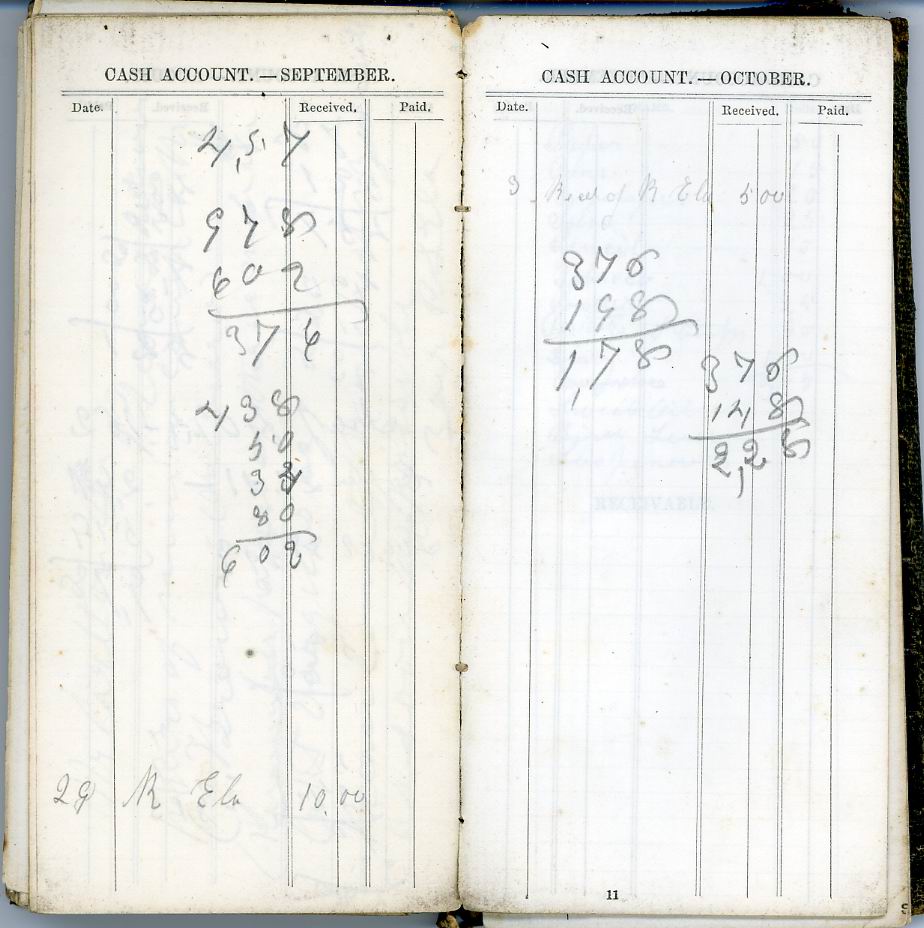 CASH ACCOUNT.—SEPTEMBER.
Date. Received. Paid.
4,57
978
602
376
438
50
34
80
602
29 R Ela 10.00
CASH ACCOUNT.—OCTOBER.
Date. Received. Paid.
3 Recd of R Ela 5 00
376
198
1,78
376
148
2,28
RECEIVABLE.
11